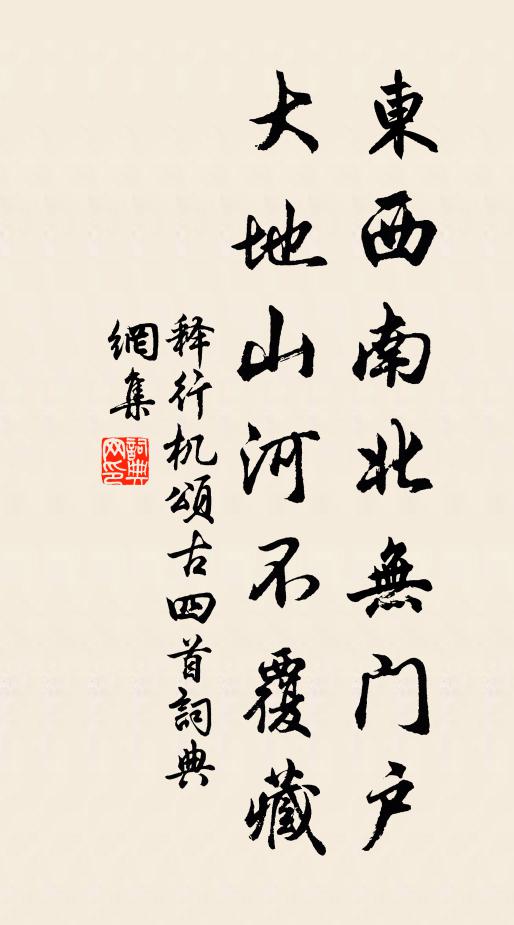 東西南北無门户
大地山河不覆藏
释行机頌古四首詞典
網集
詞典
网印